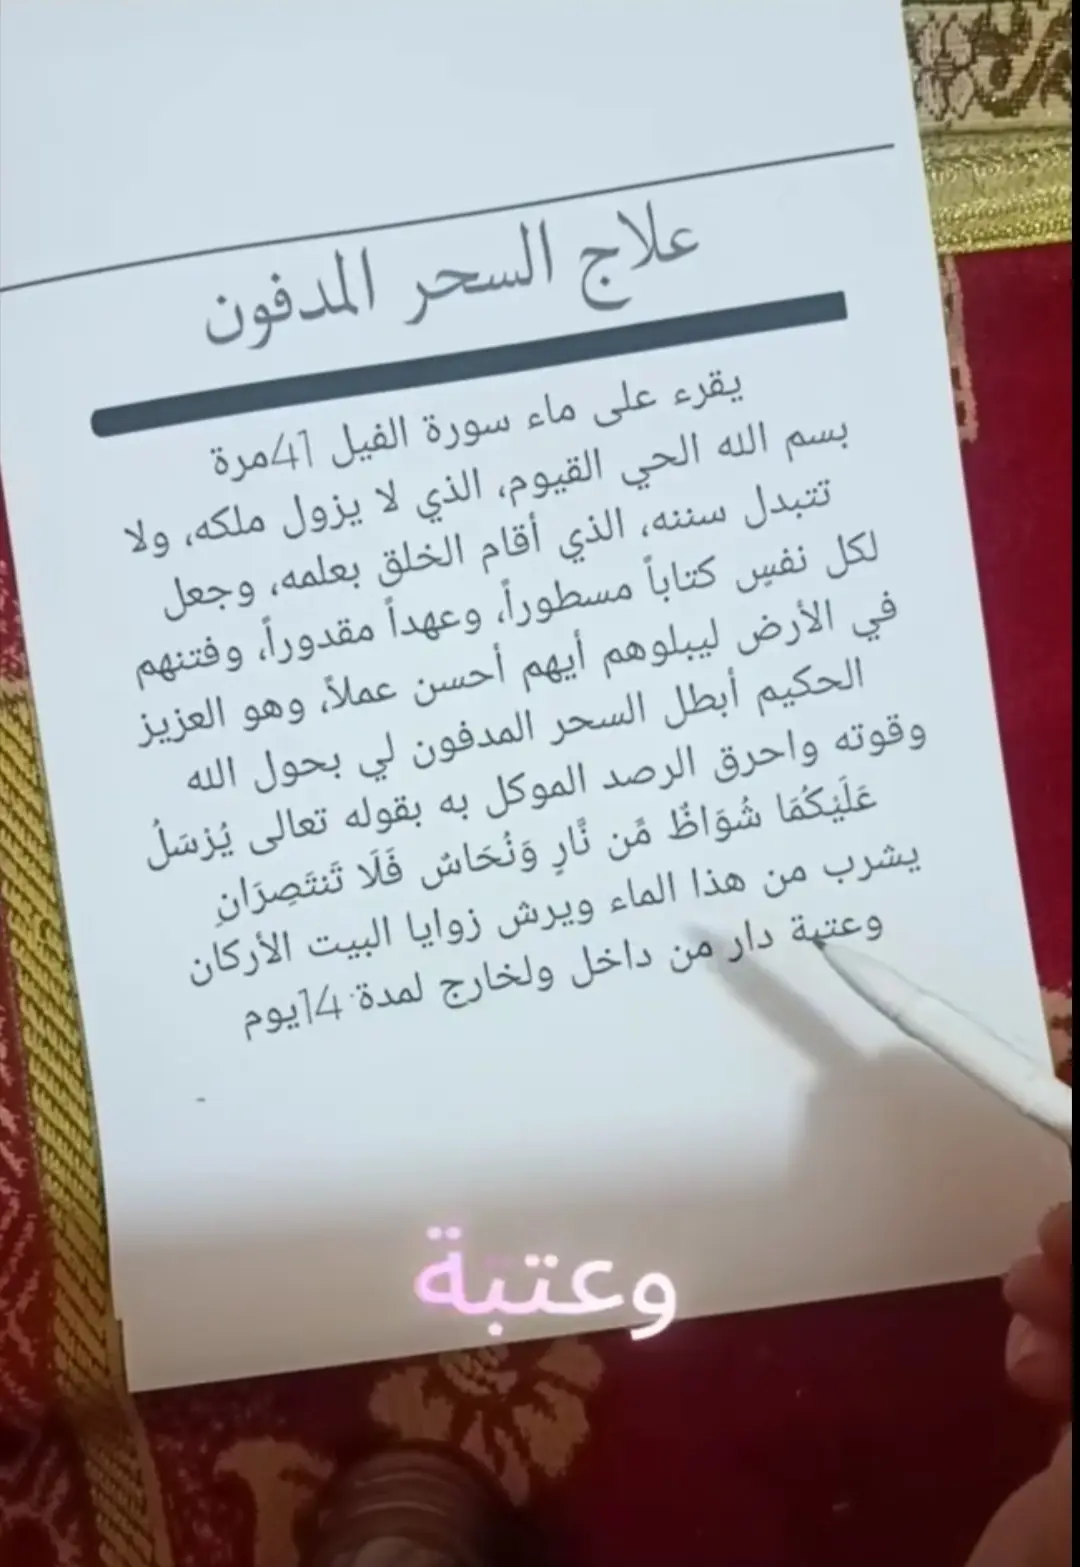 علاج السحر المدفون
يقرء على ماء سورة الفيل 41مرة
بسم الله الحي القيوم، الذي لا يزول ملكه، ولا
تتبدل سننه، الذي أقام الخلق بعلمه، وجعل
لكل نفسٍ كتاباً مسطوراً، وعهداً مقدوراً، وفتنهم
في الأرض ليبلوهم أيهم أحسن عملاً، وهو العزيز
الحكيم أبطل السحر المدفون لي بحول الله
وقوته واحرق الرصد الموكل به بقوله تعالى يُرْسَلُ
عَلَيْكُمَا شُوَاظٌ مِّن نَّارٍ وَنُحَاسٌ فَلَا تَنتَصِرَانِ
يشرب من هذا الماء ويرش زوايا البيت الأركان
وعتبة دار من داخل ولخارج لمدة 14يوم
وعتبة